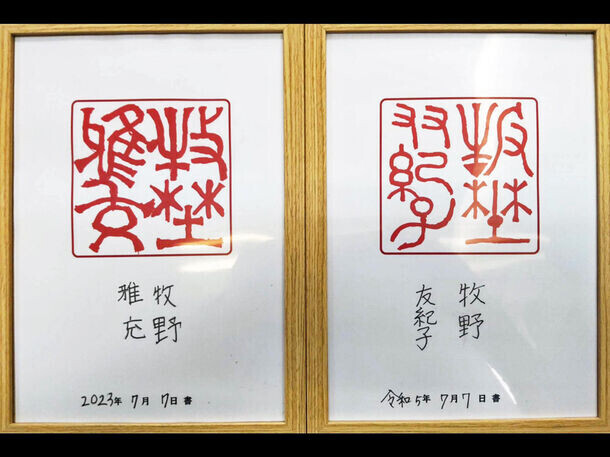 牧野
雅充
牧野
雅充
2023年 7月 7日 書
牧野
友紀子
牧野
友紀子
令和5年 7月7日 書